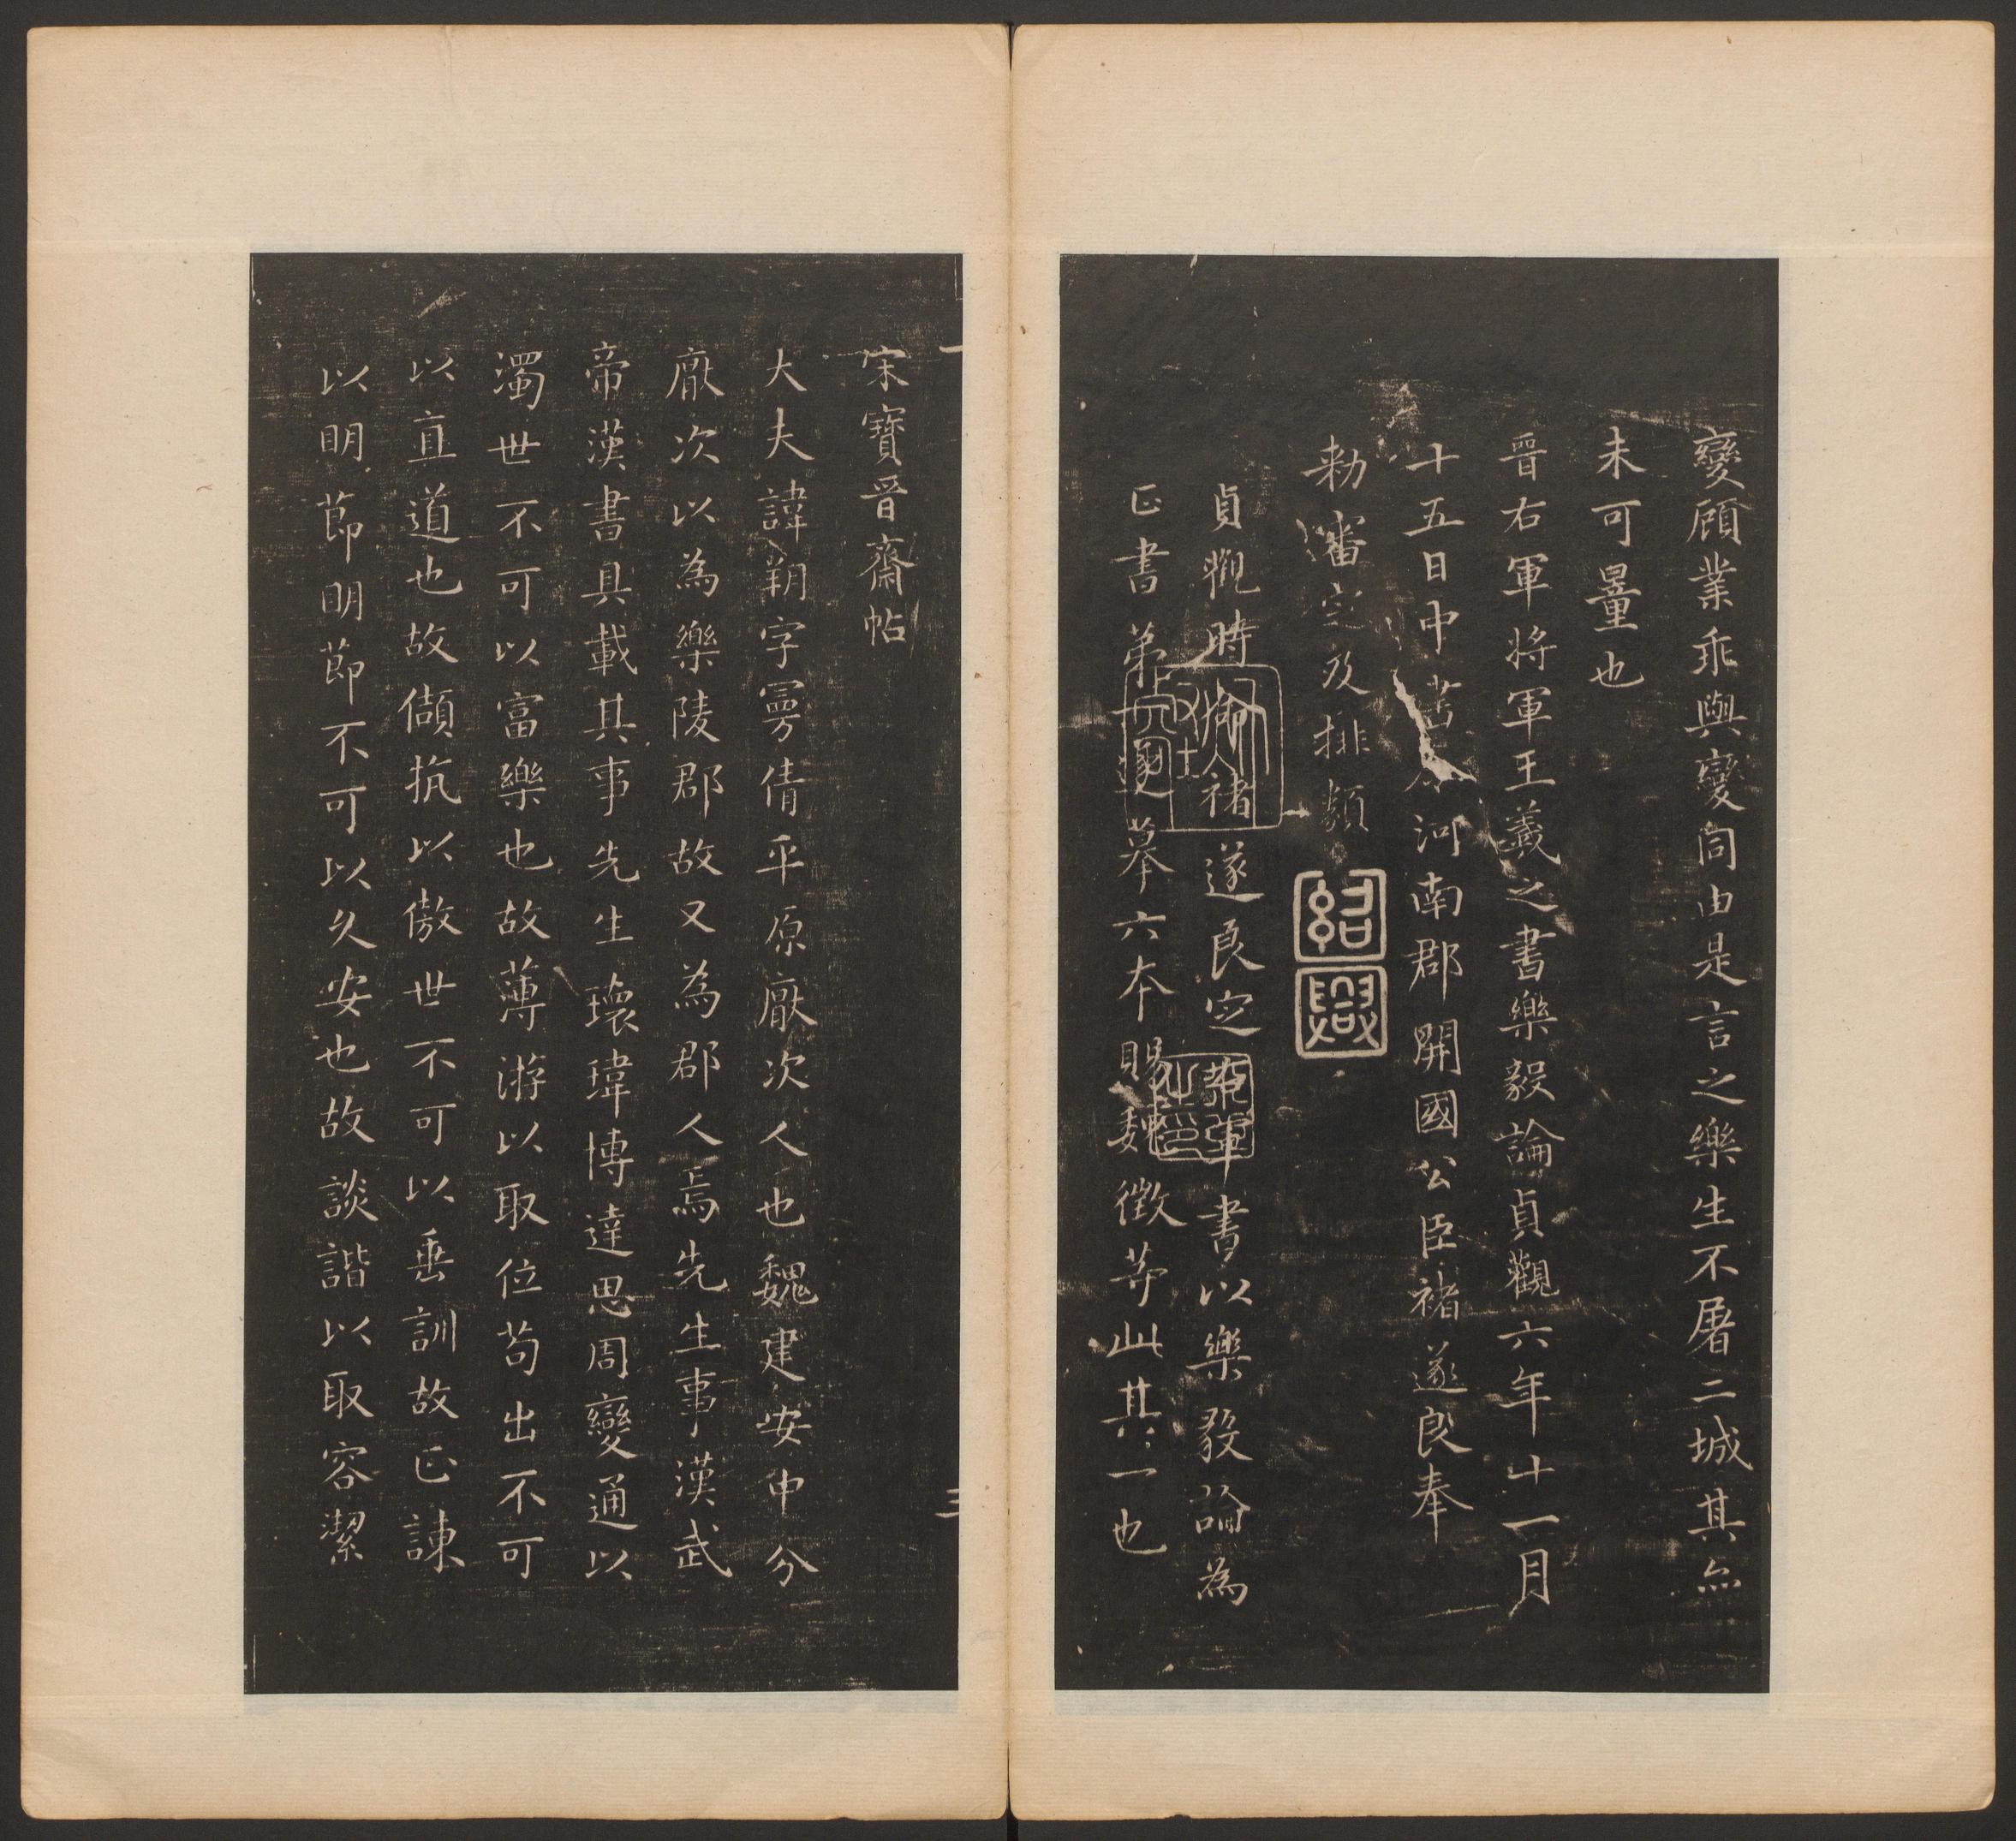 變顧業乖與變同由是言之樂生不屠二城其亦
未可量也
晉右軍將軍王羲之書樂毅論貞觀六年十一月
十五日中書令河南郡開國公臣褚遂良奉
勑審定及排類
紹
興
貞觀時褚遂良定右軍書以樂毅論為
正書第一摹六本賜魏徵等此其一也
宋寶晉齋帖
大夫諱朔字曼倩平原厭次人也魏建安中分
厭次以為樂陵郡故又為郡人焉先生事漢武
帝漢書具載其事先生瓌瑋博達思周變通以
濁世不可以富樂也故薄游以取位苟出不可
以直道也故頡抗以傲世不可以垂訓故正諫
以明節明節不可以久安也故談諧以取容潔
三